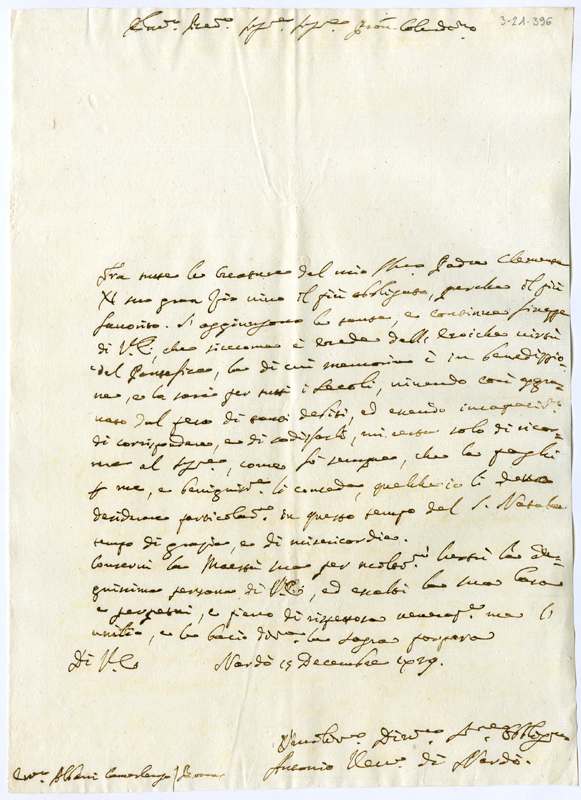 3-21-396
Em.mo Rev.mo Sig.re Sig.re Pron Colendis.mo
Tra tutte le Creature del mio Padre Clemente
XI suo gran Zio vivo il più obbligato, perche il più
favorito. S'aggiungono le tante, e continue finezze
di V.E., che siccome è erede dell' eroiche virtù
del Pontefice, la di cui memoria è in benedizio-
ne, e lo sarà per tutti i secoli, vivendo così aggra-
vato dal peso di tanti debiti, ed essendo incapacis.mo
di corrispondere, e di sodisfarli, mi resta solo di ricor-
rere al Sig.re, come fò sempre, che la paghi
p me, e benignis.te le conceda, quelche io le
desidero particolar.te in questo tempo del S. Natale
tempo di grazie, e di misericordie.
Conservi la Maestà sua per molti lustri la de-
gnissima persona di V.E., ed esalti la sua Casa
e pieno di rispettosa veneraz.ne me l'
umilio, e le bacio la sagra porpora
Di V.E. Nardò 15 Decembre 1729.
Umilis.mo Divo.mo Obbligatis.mo
Antonio Vesc.o di Nardò.
Albani Camerlengo / Roma